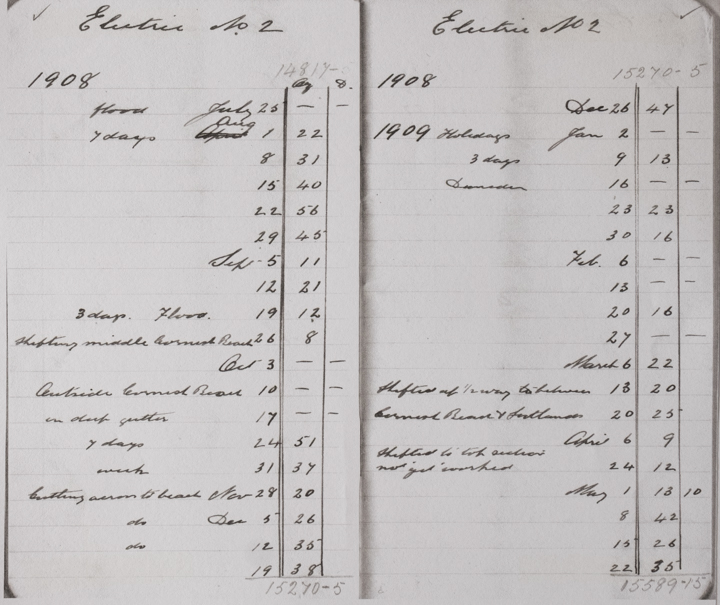 Electric No. 2
14817-
1908 Oz D.
flood July 25 — —
7 days Aug 1 22
8 31
15 40
22 56
29 45
Sept 5 11
12 21
3 days. Flood. 19 12
Shifting middle Cornish Beach 26 8
Oct 3 — —
Outside Cornish Beach 10 — —
in deep gutter 17 — —
7 days 24 51
week 31 37
Cutting across to beach Nov 28 20
do Dec 5 26
do 12 35
19 38
15270-5
Electric No 2
15270-5
1908
Dec 26 47
1909 Holidays Jan 2 — —
3 days 9 13
Dunedin 16 — —
23 23
30 16
Feb. 6 — —
13 — —
20 16
27 — —
March 6 22
Shifted up 1/2 way to between 13 20
Cornish Beach & 20 25
April 6 9
Shifted to top
not yet worked 24 12
May 1 13 10
8 42
15 26
22 35
15589-15